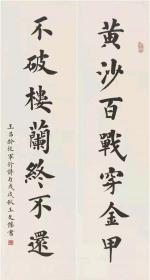 黃沙百戰穿金甲
不破樓蘭終不還
王昌齡從軍行詩句戊戌秋王文陽書